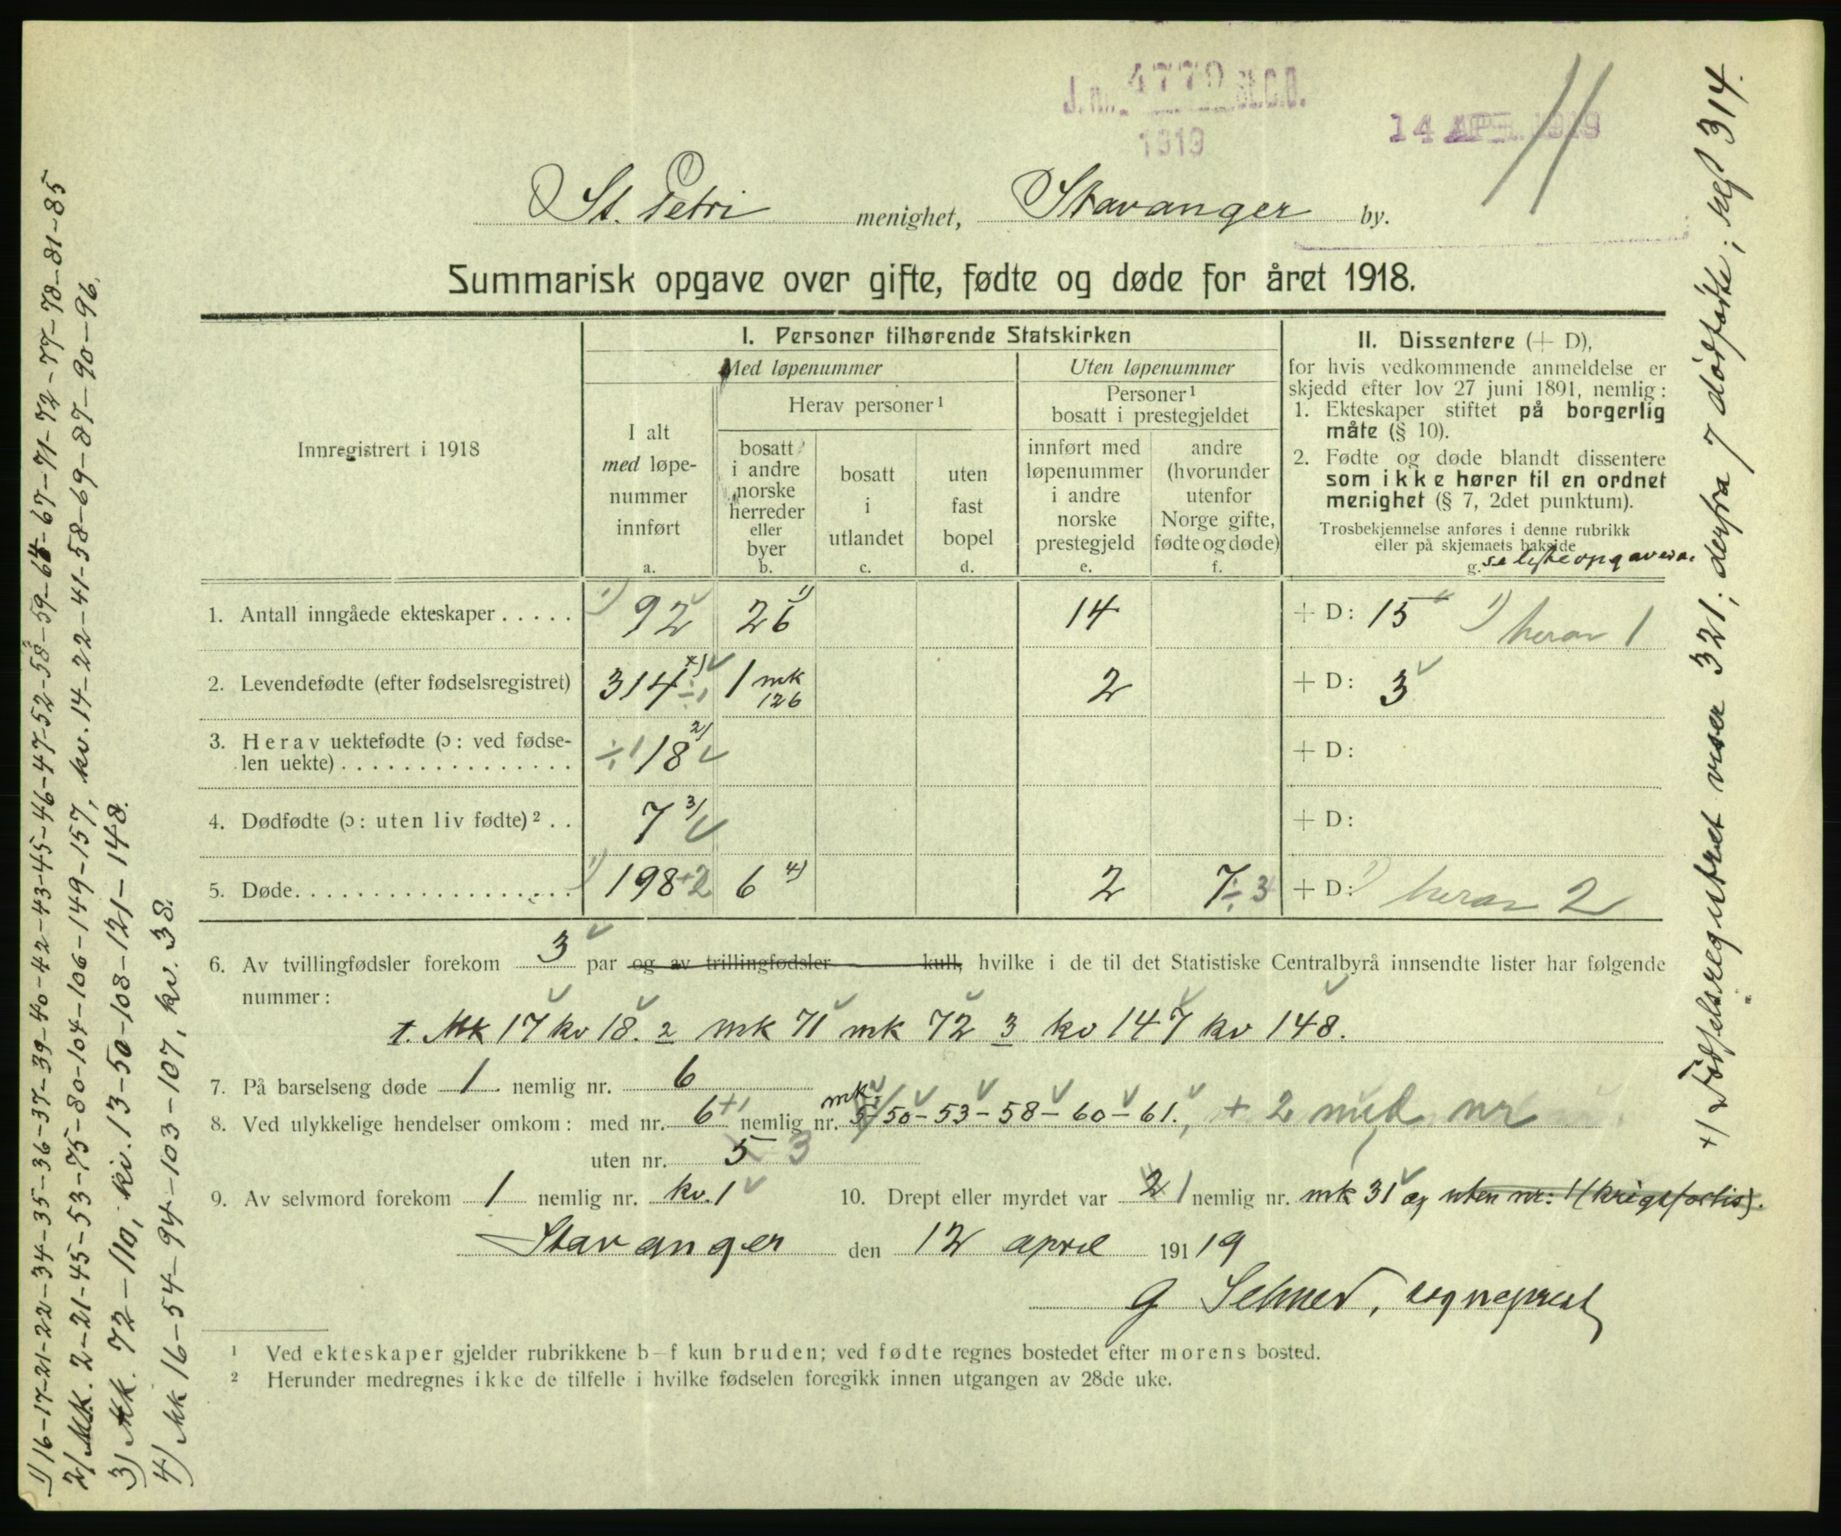 J. nr. 4779 St.C.B.
1919
14 APR. 1919
St. Petri menighet, Stavanger by.
Summarisk opgave over gifte, fødte og døde for året 1918.
Innregistrert i 1918
I. Personer tilhørende Statskirken
Med løpenummer
Uten løpenummer
I alt
med løpe-
nummer
innført
a.
Herav personer¹
bosatt
i andre
norske
herreder
eller
byer
b.
bosatt
i
utlandet
c.
uten
fast
bopel
d.
Personer¹
bosatt i prestegjeldet
innført med
løpenummer
i andre
norske
prestegjeld
e.
andre
(hvorunder
utenfor
Norge gifte,
fødte og døde)
f.
II. Dissentere (+ D),
for hvis vedkommende anmeldelse er
skjedd efter lov 27 juni 1891, nemlig:
1. Ekteskaper stiftet på borgerlig
måte (§ 10).
2. Fødte og døde blandt dissentere
som ikke hører til en ordnet
menighet (§ 7, 2det punktum).
Trosbekjennelse anføres i denne rubrikk
eller på skjemaets bakside
g. se listeopgavera.
1. Antall inngåede ekteskaper ..... 1) 92 26 1) 14 + D: 15 1) herav 1
2. Levendefødte (efter fødselsregistret) 314 +) ÷1 1 mk 126 2 + D: 3
3. Herav uektefødte (ɔ: ved fødse-
len uekte) ............... ÷1 18 2) + D:
4. Dødfødte (ɔ: uten liv fødte)² .. 7 3) + D:
5. Døde.................. 1) 198+2 6 4) 2 7÷3 + D: 1) herav 2
6. Av tvillingfødsler forekom 3 par og av trillingfødsler kull, hvilke i de til det Statistiske Centralbyrå innsendte lister har følgende
nummer:
1. Mk 17 kv 18. 2 mk 71 mk 72 3 kv 147 kv 148.
7. På barselseng døde 1 nemlig nr. 6
8. Ved ulykkelige hendelser omkom: med nr. 6+1 nemlig nr. mk 5-50-53-58-60-61., + 2 med nr
uten nr. 5 3
9. Av selvmord forekom 1 nemlig nr. kv. 1 10. Drept eller myrdet var 2 1 nemlig nr. mk 31 og uten nr: 1 (krigsforlis).
Stavanger den 12 april 1919
G sogneprest
¹ Ved ekteskaper gjelder rubrikkene b—f kun bruden; ved fødte regnes bostedet efter morens bosted.
² Herunder medregnes ikke de tilfelle i hvilke fødselen foregikk innen utgangen av 28de uke.
1) 16-17-21-22-34-35-36-37-39-40-42-43-45-46-47-52-58-59-64-67-71-72-77-78-81-85
2) Mk. 2-21-45-53-75-80-104-106-149-157, kv. 14-22-41-58-69-87-90-96.
3) Mk. 72-110, kv. 13-50-108-121-148.
4) Mk 16-54-94-103-107, kv. 38.
+) Fødselsregistret viser 321; derfra 7 dødfødte; rest 314.